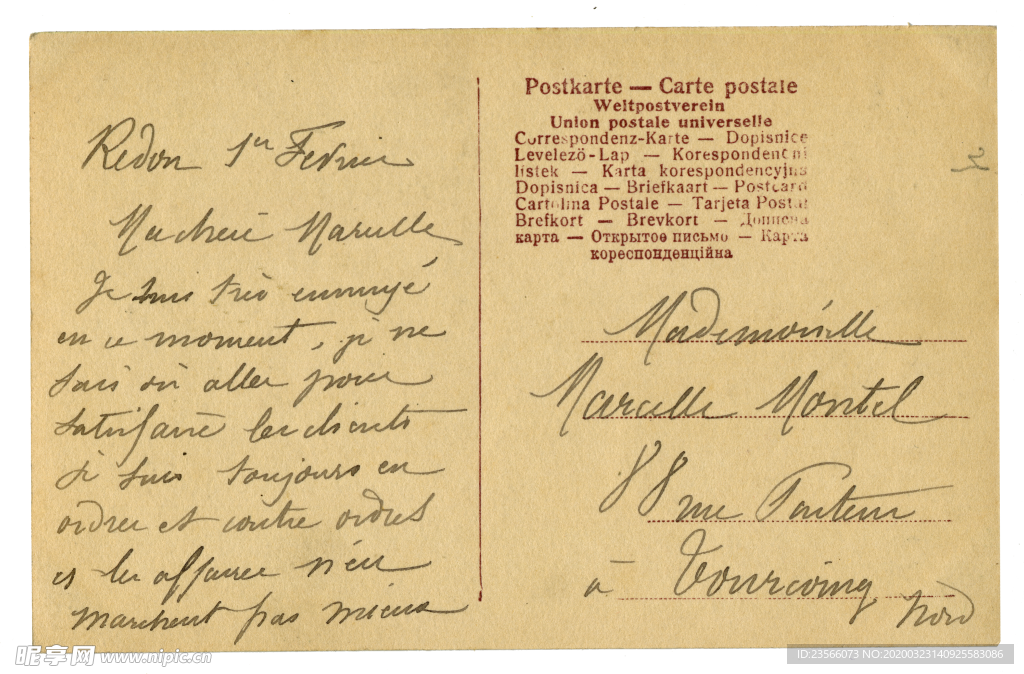 Redon 1er Fevrier
Ma cherie Marcelle
Je suis très ennuyé
en ce moment, je ne
sais où aller pour
satisfaire les clients
je suis toujours en
ordres et contre ordres
et les affaires n'en
marchent pas mieux
Postkarte — Carte postale
Weltpostverein
Union postale universelle
Correspondenz-Karte — Dopisnice
Levelező-Lap — Korespondenčni
listek — Karta korespondencyjna
Dopisnica — Briefkaart — Postcard
Cartolina Postale — Tarjeta Postal
Brefkort — Brevkort — Дописна
карта — Открытое письмо — Карта
кореспонденційна
Mademoiselle
Marcelle Montel
88 rue Pasteur
à Tourcoing
Nord
昵享网 www.nipic.cn
ID:23566073 NO:20200323140925583086